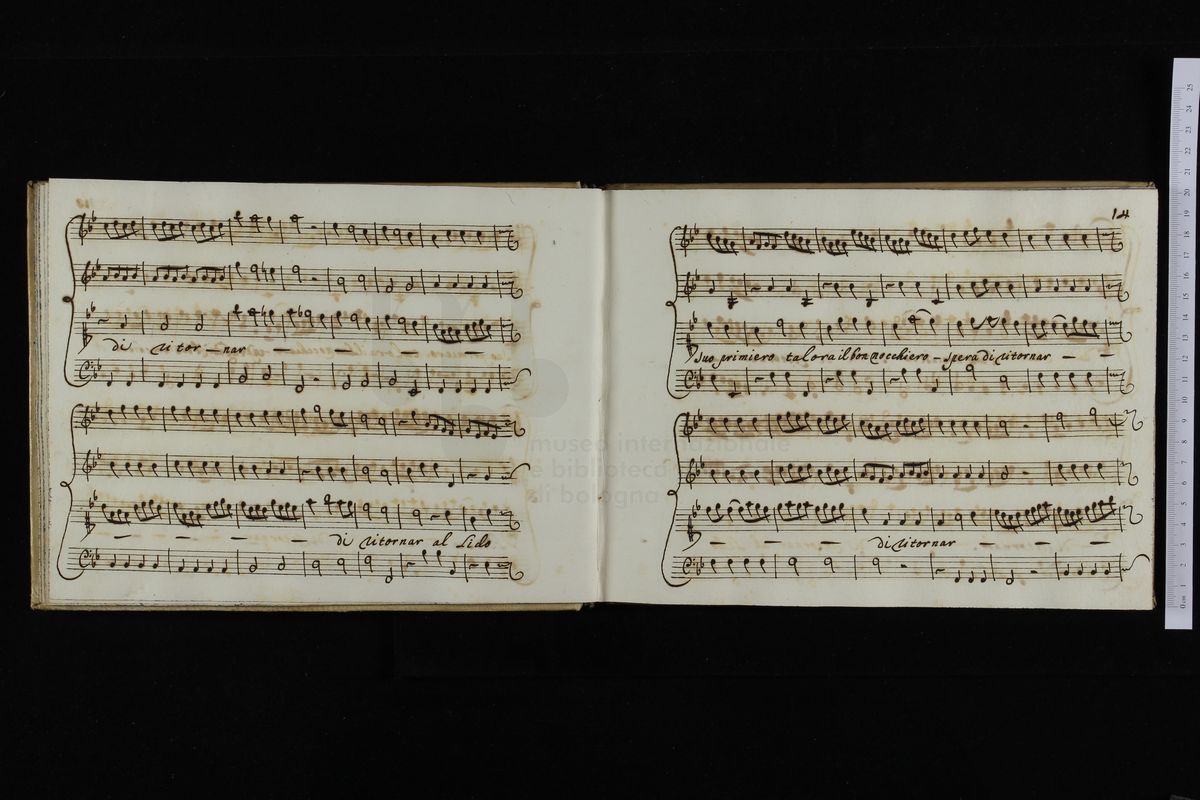 di ritor - nar
di ritornar al Lido
14
Suo primiero talora il bon nocchiero - spera di ritornar
di ritornar
museo internazionale
e biblioteca
di bologna
0 cm 1 2 3 4 5 6 7 8 9 10 11 12 13 14 15 16 17 18 19 20 21 22 23 24 25